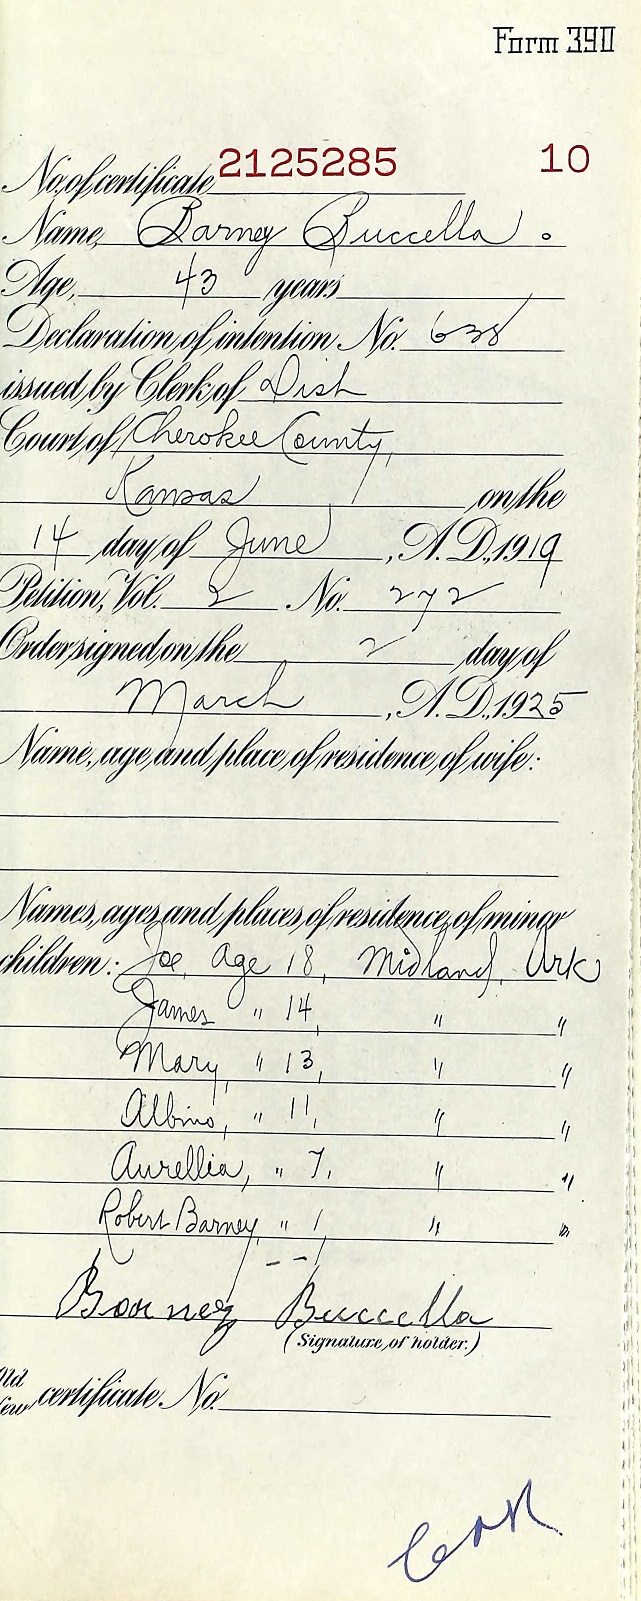 Form 390
No. of certificate 2125285 10
Name, Barney Buccella.
Age, 43 years
Declaration of intention No. 638
issued by Clerk of Dist
Court of Cherokee County,
Kansas on the
14 day of June, A.D. 1919
Petition, Vol. 2 No. 272
Order signed on the 2 day of
March, A.D. 1925
Name, age, and place of residence of wife:
Names, ages, and places of residence of minor
children: Joe, Age 18, Midland, Ark
James " 14, " "
Mary, " 13, " "
Albino, " 11, " "
Aurellia, " 7, " "
Robert Barney, " 1, " "
Barney Buccella
(Signature of holder.)
Old
New certificate No.